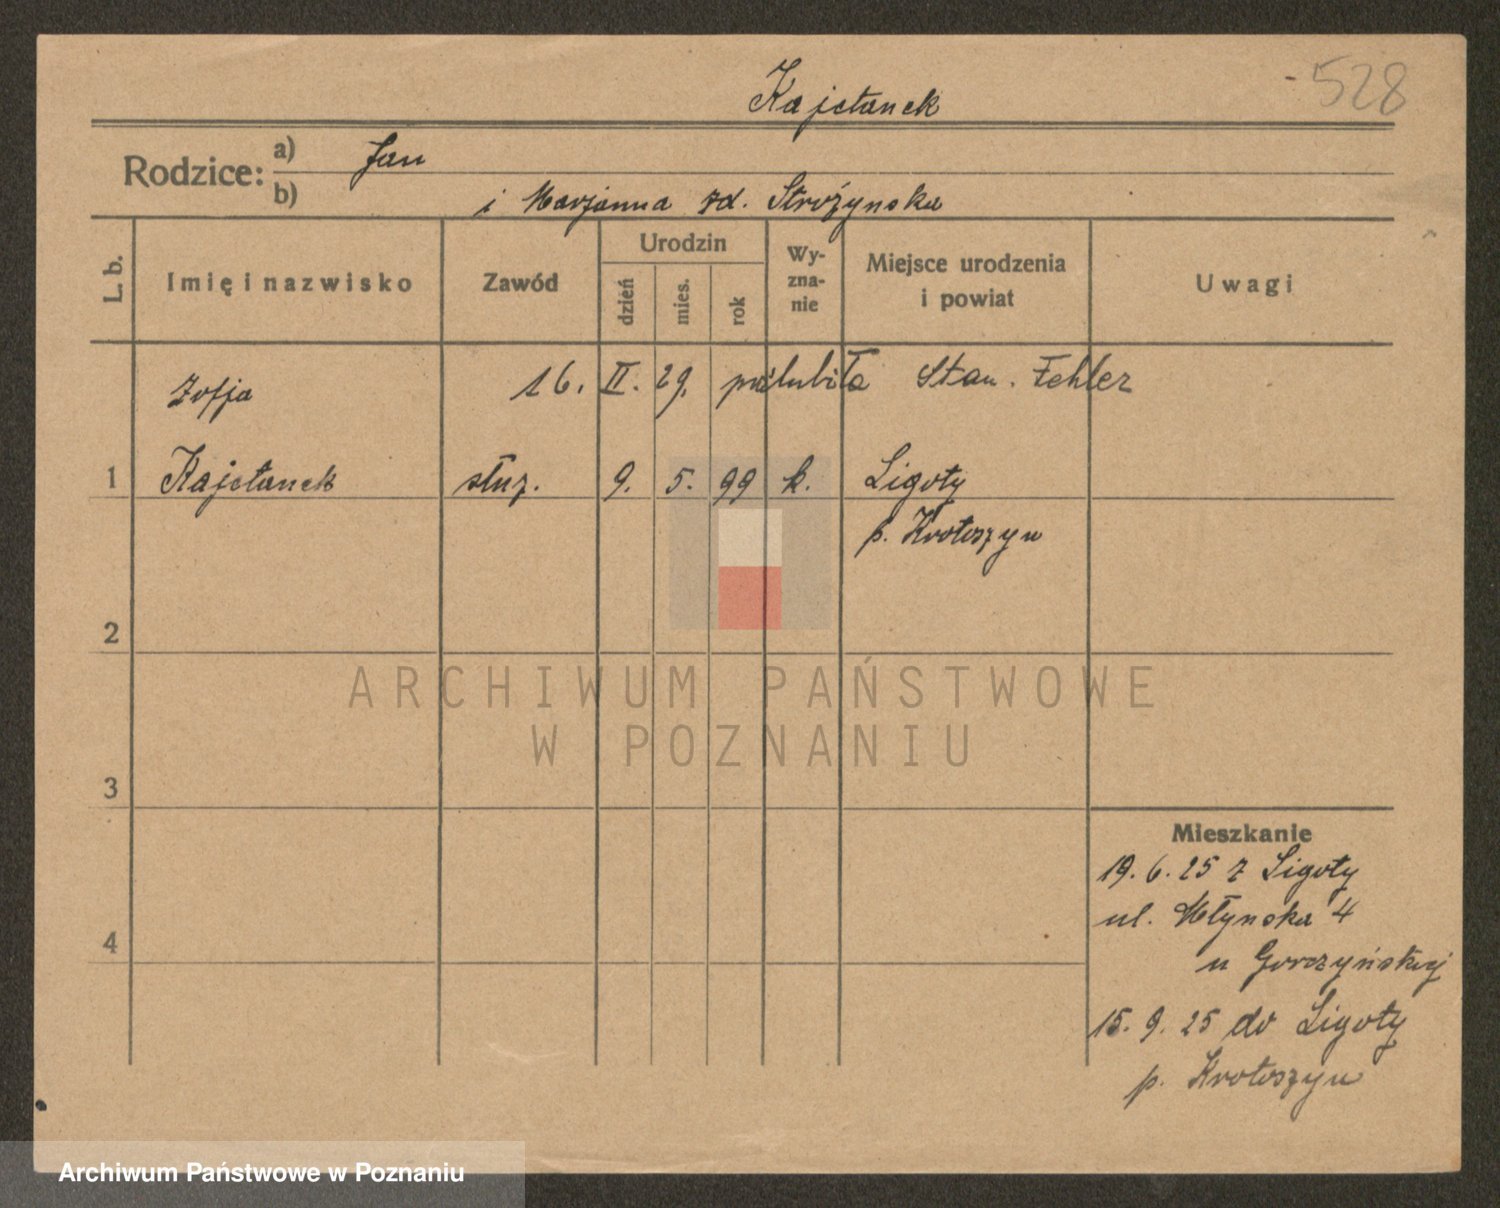 528
Kajetanek
Rodzice: a) Jan
b) i Marjanna zd. Strożynska
L. b. Imię i nazwisko Zawód Urodzin dzień mies. rok Wyznanie Miejsce urodzenia i powiat Uwagi
Zofja 16. II. 29. poślubiła Stan. Fehler
1 Kajetanek służ. 9. 5. 99 k. Ligoty
p. Krotoszyn
2
3
Mieszkanie
19. 6. 25 z Ligoty
ul. Młynska 4
4
u Gorczyńskiej
15. 9. 25 do Ligoty
p. Krotoszyn
ARCHIWUM PAŃSTWOWE
W POZNANIU
Archiwum Państwowe w Poznaniu